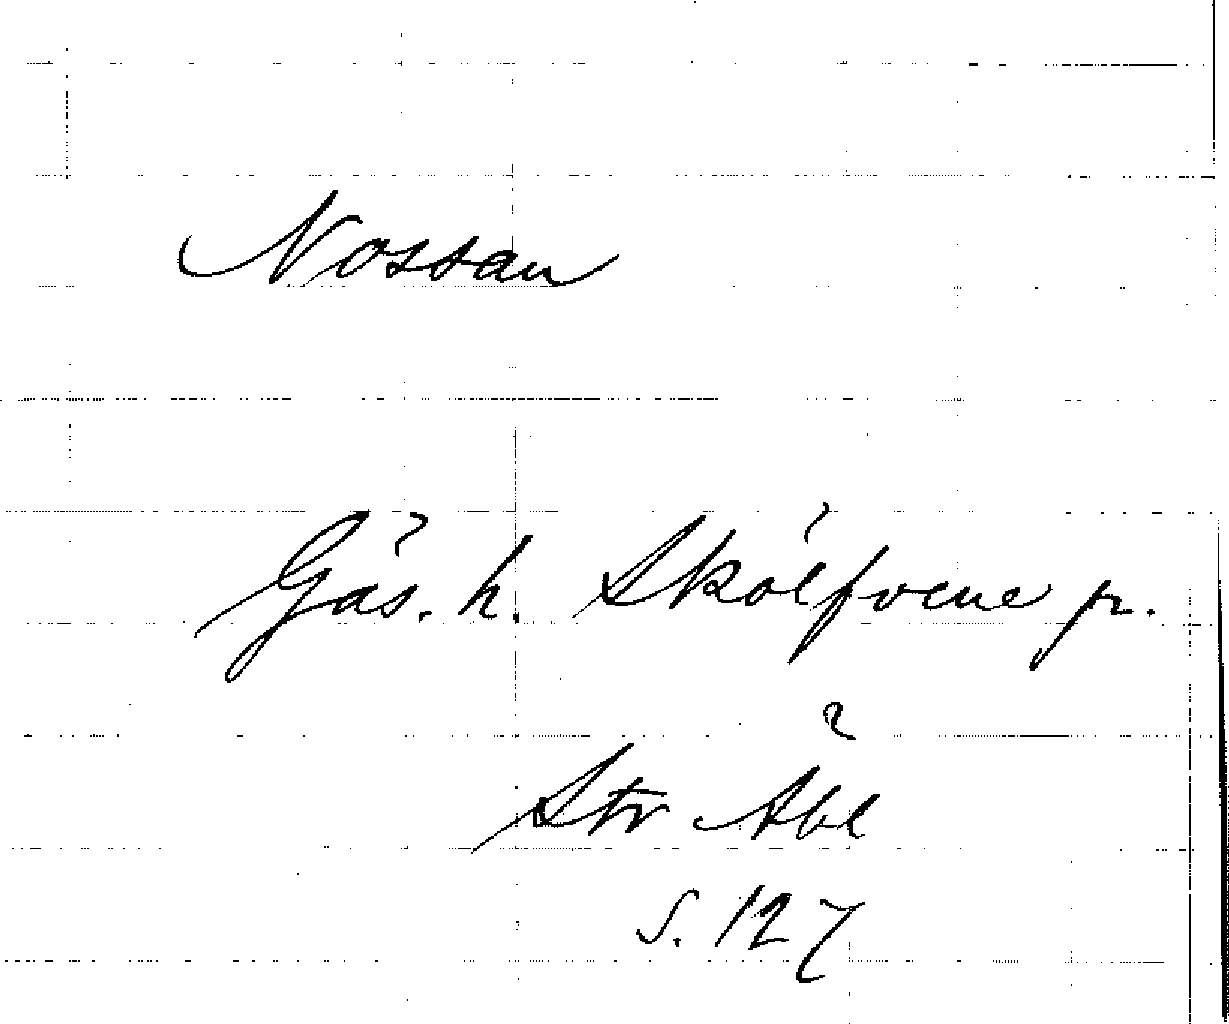 Nossan
Gäs. h. Skölfvene pr.
Str Åbl
s. 127